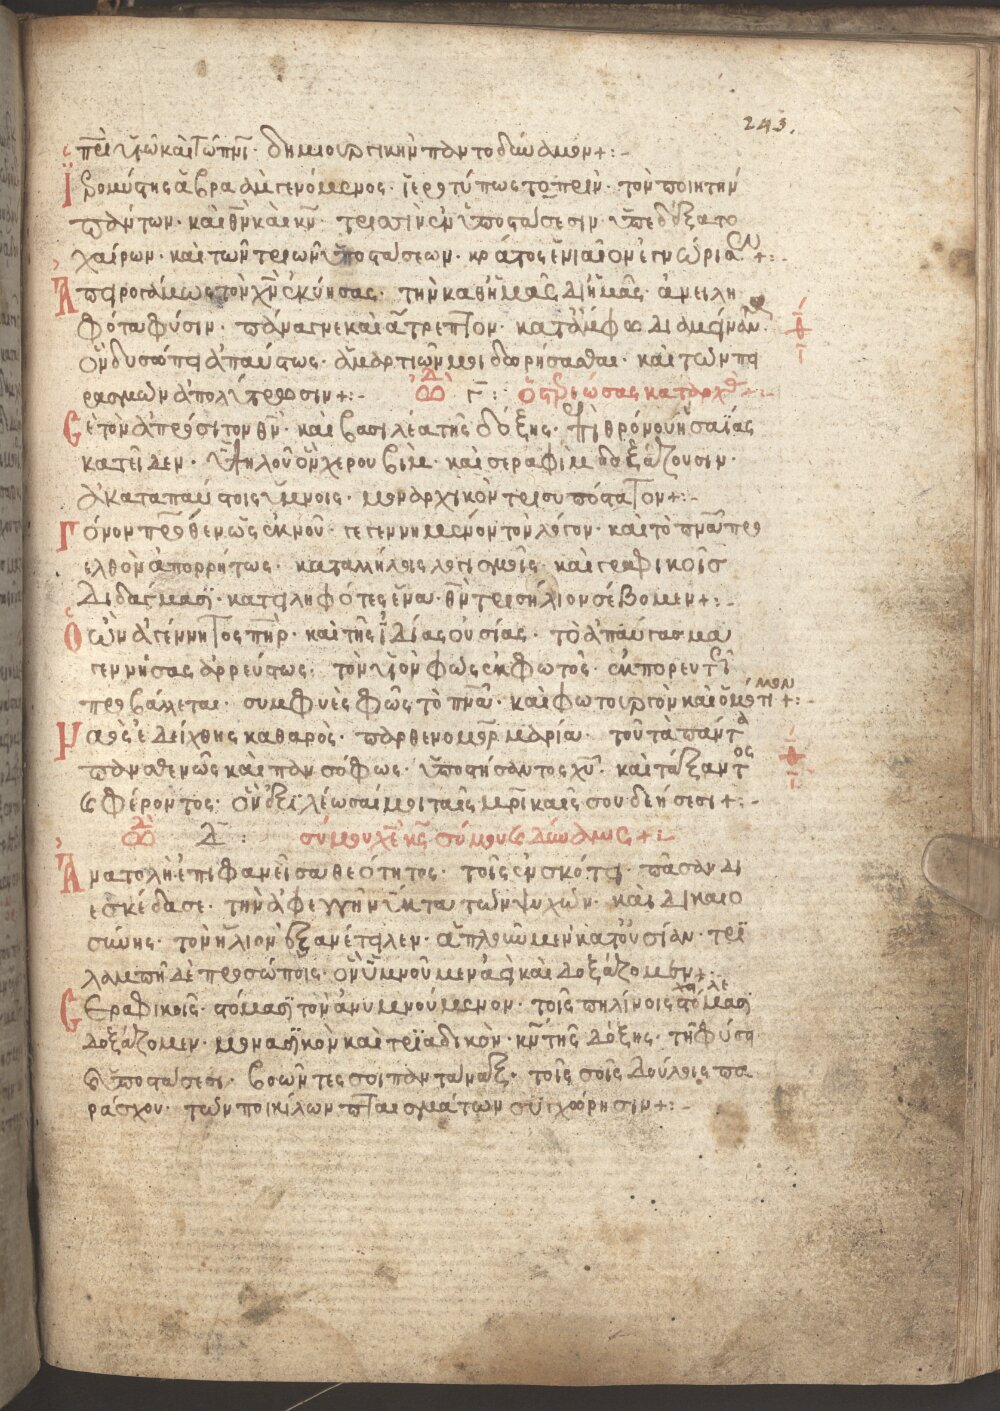 243.
πρι̅ υἱῷ καὶ τῶ πνι̅· δημιουργικὴν παντοδύναμον+:-
Ἱερομύστης ἀβραὰμ γενόμενος· ἱεροτύπως τὸ πρὶν· τὸν ποιητὴν
πάντων· καὶ θν̅ καὶ κν̅· τρισὶν ἐν ὑποστάσεσιν· ὑπεδέξατο
χαίρων· καὶ τῶν τριῶν ὑποστάσεων· κράτος ἑνιαῖον ἐγνώρισεν+:-
Ἀπειρογάμως τὸν χν̅ ἐκύησας· τὴν καθημᾶς δι ἡμᾶς· ἀνειλη
φότα φύσιν· πάναγνε καὶ ἄτρεπτον· κατάμφω διαμείναντα
ὃν δυσώπει ἀπαύστως· ἁμαρτιῶν μοι δωρήσασθαι· καὶ τῶν πει
ρασμῶν ἀπολύτρωσιν+:-
ᾠδὴ γ̅: ὁ στερεώσας καταρχὰς+:-
Σὲ τὸν ἀπρόσιτον θν̅· καὶ βασιλέα τῆς δόξης· ἐπὶ θρόνου ἡσαΐας
κατεῖδεν· ὑψηλοῦ ὃν χερουβὶμ· καὶ σεραφὶμ δοξάζουσιν·
ἀκαταπαύστοις ὕμνοις· μοναρχικὸν τρισυπόστατον+:-
Γόνον πρσ̅ θενῶς ἐκ νοῦ· γεγεννημένον τὸν λόγον· καὶ τὸ πνα̅ προ
ελθὸν ἀπορρήτως· καταλλήλοις λογισμοῖς· καὶ γραφικοῖς
διδάγμασι· κατειληφότες ἕνα· θν̅ τρισήλιον σέβομεν+:-
Ὁ ὢν ἀγέννητος πηρ̅· καὶ τῆς ἰδίας οὐσίας· τὸ ἀπαύγασμα
γεννήσας ἀρρεύστως· τὸν υἱὸν φῶς ἐκ φωτὸς· ἐκπορευτῶς
προβάλλεται· συμφυὲς φῶς τὸ πνα̅· καὶ φωτουργὸν καὶ ὁμότιμον+:-
Ναὸς ἐδείχθης καθαρὸς· παρθενομηρ̅ μαρία· τοῦ τὰ πάντα
πανσθενῶς καὶ πανσόφως· ὑποστήσαντος χυ̅· καὶ τάξαντος
καὶ φέροντος· ὃν ἐξιλέωσαί μοι ταῖς μρι̅καῖς σου δεήσεσι+:-
ᾠδὴ δ̅: σύ μου χε̅ κς̅ σύ μου καὶ δύναμις+:-
Ἀνατολὴ ἐπιφανεῖσα θεότητος· τοῖς ἐν σκότει· πᾶσαν δι
εσκέδασε· τὴν ἀφεγγῆ νύκτα τῶν ψυχῶν· καὶ δικαιο
σύνης· τὸν ἥλιον ἐξανέτειλεν· ἁπλοῦμεν κατουσίαν· τρι
λαμπῆ δὲ προσώποις· ὃν ὑμνοῦμεν ἀεὶ καὶ δοξάζομεν+:-
Σεραφικοῖς· στόμασι τὸν ἀνυμνούμενον· τοῖς πηλίνοις στόμασι
δοξάζομεν· μοναδικὸν καὶ τριαδικὸν· κν̅ τῆς δόξης· τῇ φύσει
καὶ ὑποστάσεσι· βοῶντες σοι πανταναξ· τοῖς σοῖς δούλοις πα
ράσχου· τῶν ποικίλων πταισμάτων συγχώρησιν+:-